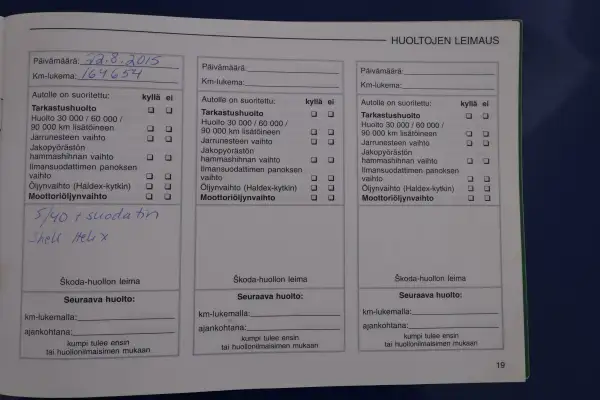 HUOLTOJEN LEIMAUS
Päivämäärä: 22.8.2015
Km-lukema: 164654
Autolle on suoritettu: kyllä ei
Tarkastushuolto
Huolto 30 000 / 60 000 /
90 000 km lisätöineen
Jarrunesteen vaihto
Jakopyörästön
hammashihnan vaihto
Ilmansuodattimen panoksen
vaihto
Öljynvaihto (Haldex-kytkin)
Moottoriöljynvaihto
5/40 + suodatin
Shell Helix
Škoda-huollon leima
Seuraava huolto:
km-lukemalla:
ajankohtana:
kumpi tulee ensin
tai huollonilmaisimen mukaan
Päivämäärä:
Km-lukema:
Autolle on suoritettu: kyllä ei
Tarkastushuolto
Huolto 30 000 / 60 000 /
90 000 km lisätöineen
Jarrunesteen vaihto
Jakopyörästön
hammashihnan vaihto
Ilmansuodattimen panoksen
vaihto
Öljynvaihto (Haldex-kytkin)
Moottoriöljynvaihto
Škoda-huollon leima
Seuraava huolto:
km-lukemalla:
ajankohtana:
kumpi tulee ensin
tai huollonilmaisimen mukaan
Päivämäärä:
Km-lukema:
Autolle on suoritettu: kyllä ei
Tarkastushuolto
Huolto 30 000 / 60 000 /
90 000 km lisätöineen
Jarrunesteen vaihto
Jakopyörästön
hammashihnan vaihto
Ilmansuodattimen panoksen
vaihto
Öljynvaihto (Haldex-kytkin)
Moottoriöljynvaihto
Škoda-huollon leima
Seuraava huolto:
km-lukemalla:
ajankohtana:
kumpi tulee ensin
tai huollonilmaisimen mukaan
19